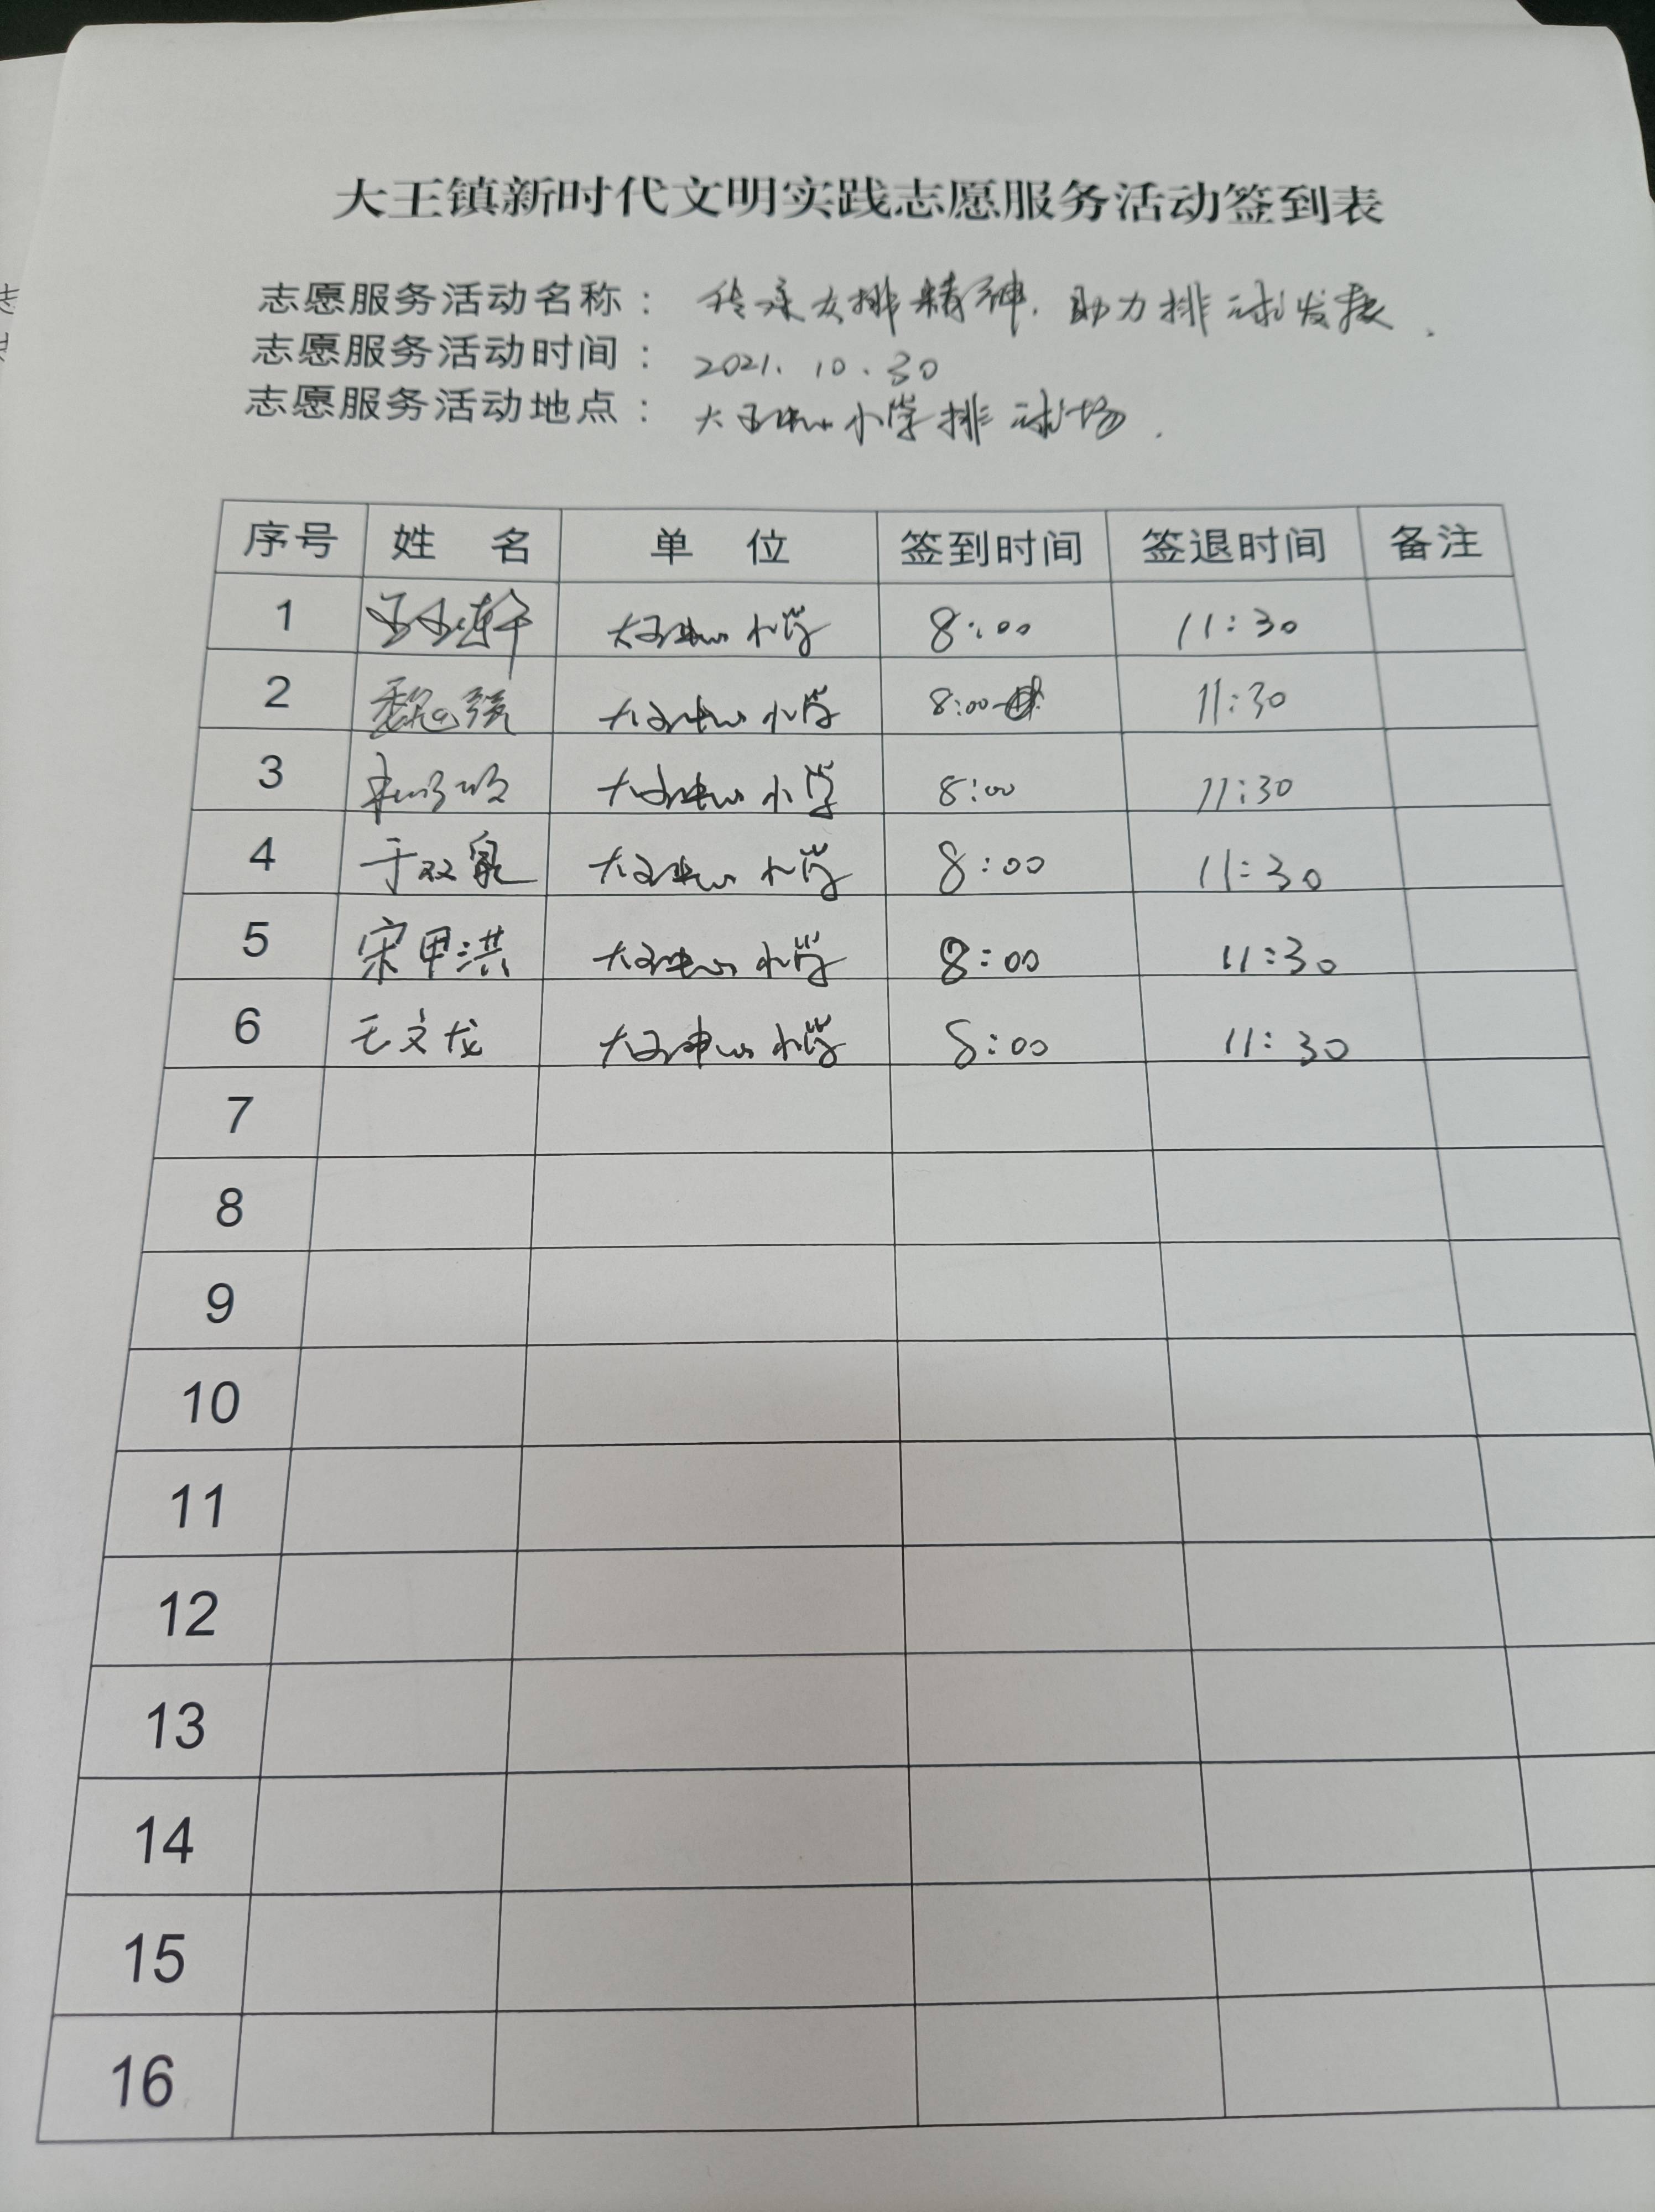 大王镇新时代文明实践志愿服务活动签到表
志愿服务活动名称： 传承女排精神.助力排球发展.
志愿服务活动时间： 2021.10.30
志愿服务活动地点： 大王中心小学排球场.
序号 姓名 单位 签到时间 签退时间 备注
1 大王中心小学 8:00 11:30
2 魏强 大王中心小学 8:00 11:30
3 大王中心小学 8:00 11:30
4 于双泉 大王中心小学 8:00 11:30
5 宋甲洪 大王中心小学 8:00 11:30
6 王文龙 大王中心小学 8:00 11:30
7
8
9
10
11
12
13
14
15
16